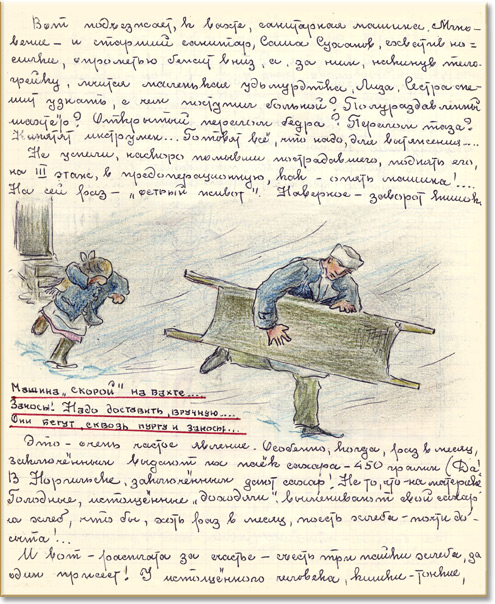 Вот подъезжает, к вахте, санитарная машина. Мгно-
вение – и старший санитар, Саша Суханов, схватив но-
силки, опрометью бежит вниз, а, за ним, накинув тело-
грейку, мчится маленькая удмуртка, Лиза. Сестра спе-
шит узнать, с чем поступил больной? Полураздавленный
шахтёр? Открытый перелом бедра? Перелом таза?
Кипятят инструмен... Готовят всё, что надо, для вытяжения....
Не успели, наскоро помывши пострадавшего, поднять его,
на III этаж, в предоперационную, как – опять машина!....
На сей раз – „острый живот". Наверное – заворот кишок.
Машина „скорой" на вахте....
Заносы! Надо доставить, вручную....
Они бегут, сквозь пургу и заносы...
Это – очень частое явление. Особенно, когда, раз в месяц,
заключённым выдают их паёк сахара – 450 грамм (Да!
В Норильске, заключённым дают сахар! Не то, что на материке)
Голодные, истощённые „доходяги", выменивают свой сахар
на хлеб, что бы, хоть раз в месяц, поесть хлеба – почти до-
сыта!...
И вот – расплата за счастье – съесть три пайки хлеба, за
один присест! У истощённого человека, кишки – тонкие,